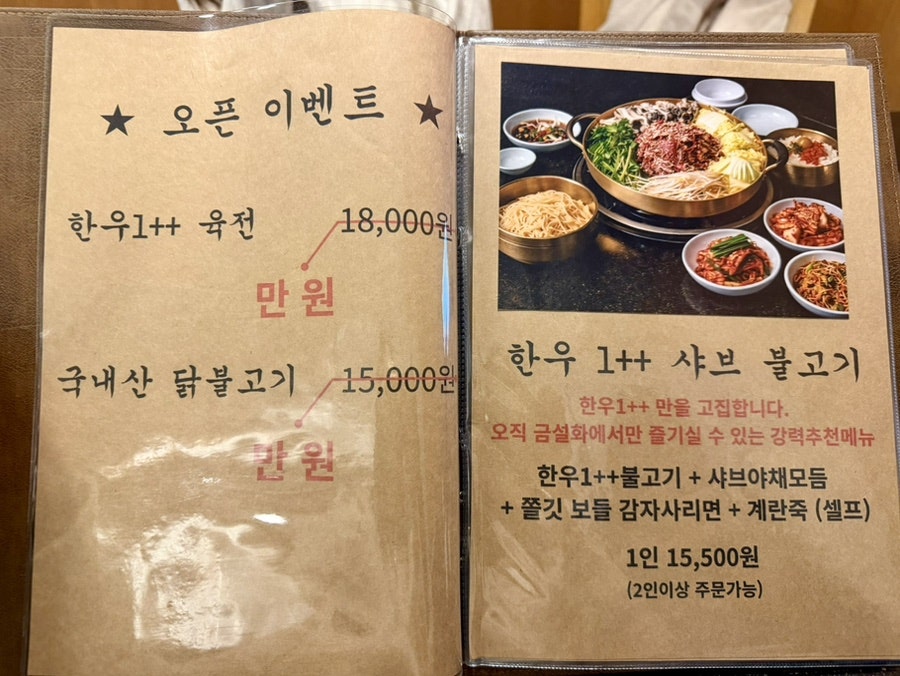 ★ 오픈 이벤트 ★
한우1++ 육전 18,000원
만 원
국내산 닭불고기 15,000원
만 원
한우 1++ 샤브 불고기
한우1++ 만을 고집합니다.
오직 금설화에서만 즐기실 수 있는 강력추천메뉴
한우1++불고기 + 샤브야채모듬
+ 쫄깃 보들 감자사리면 + 계란죽 (셀프)
1인 15,500원
(2인이상 주문가능)